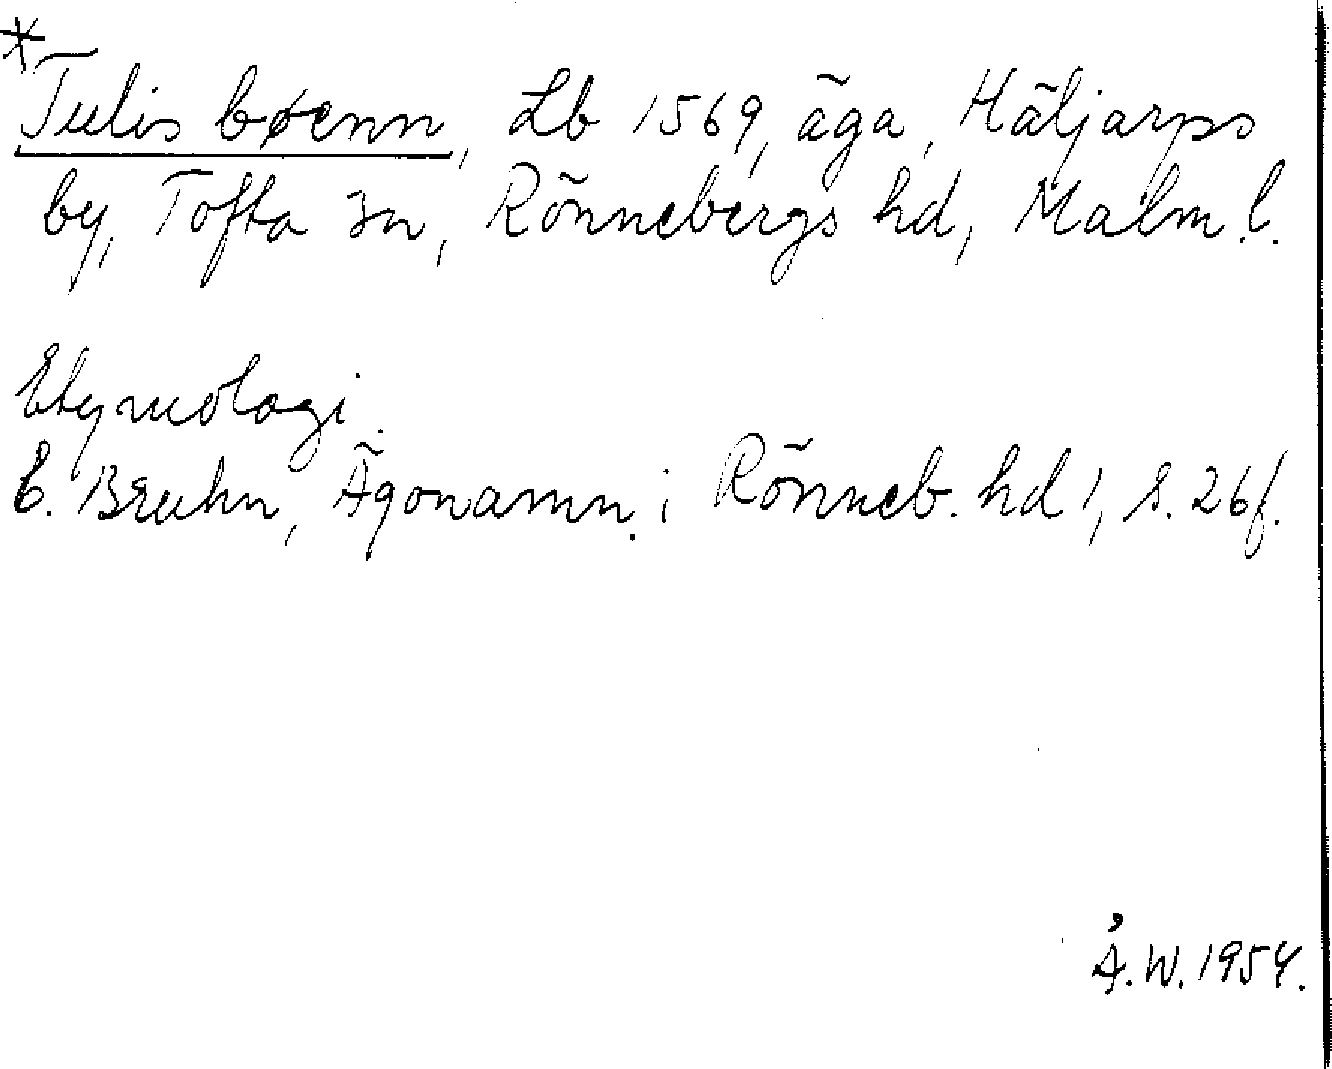 *Tulis bøenn, Lb 1569, äga, Häljarps
by, Tofta sn, Rönnebergs hd, Malm. l.
Etymologi.
E. Bruhn, Ägonamn. i Rönneb. hd 1, s. 26 f.
Å. W. 1954.